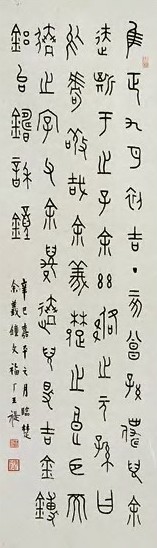 隹正九月初吉丁亥曾孫僕兒余
達斯于之子余茲佫之元孫曰
於嘑敬哉余義楚之良臣而
逨之字父余贎逨兒得吉金鎛
鋁台鑄訴鐘
辛巳嘉平之月臨楚
余義鐘文福厂王禔